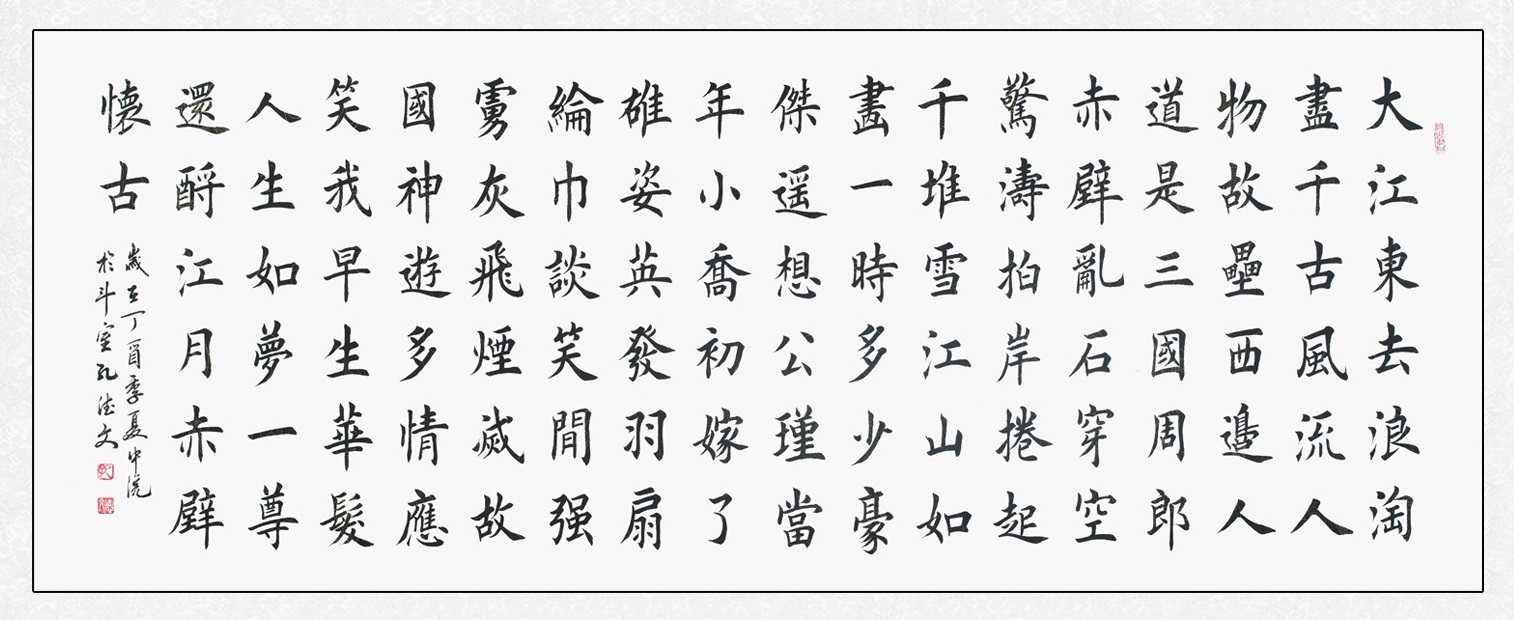 大江東去浪淘
盡千古風流人
物故壘西邊人
道是三國周郎
赤壁亂石穿空
驚濤拍岸捲起
千堆雪江山如
畫一時多少豪
傑遥想公瑾當
年小喬初嫁了
雄姿英發羽扇
綸巾談笑間强
虜灰飛煙滅故
國神遊多情應
笑我早生華髮
人生如夢一尊
還酹江月赤壁
懷古
歲在丁酉季夏中浣
於斗室孔德文